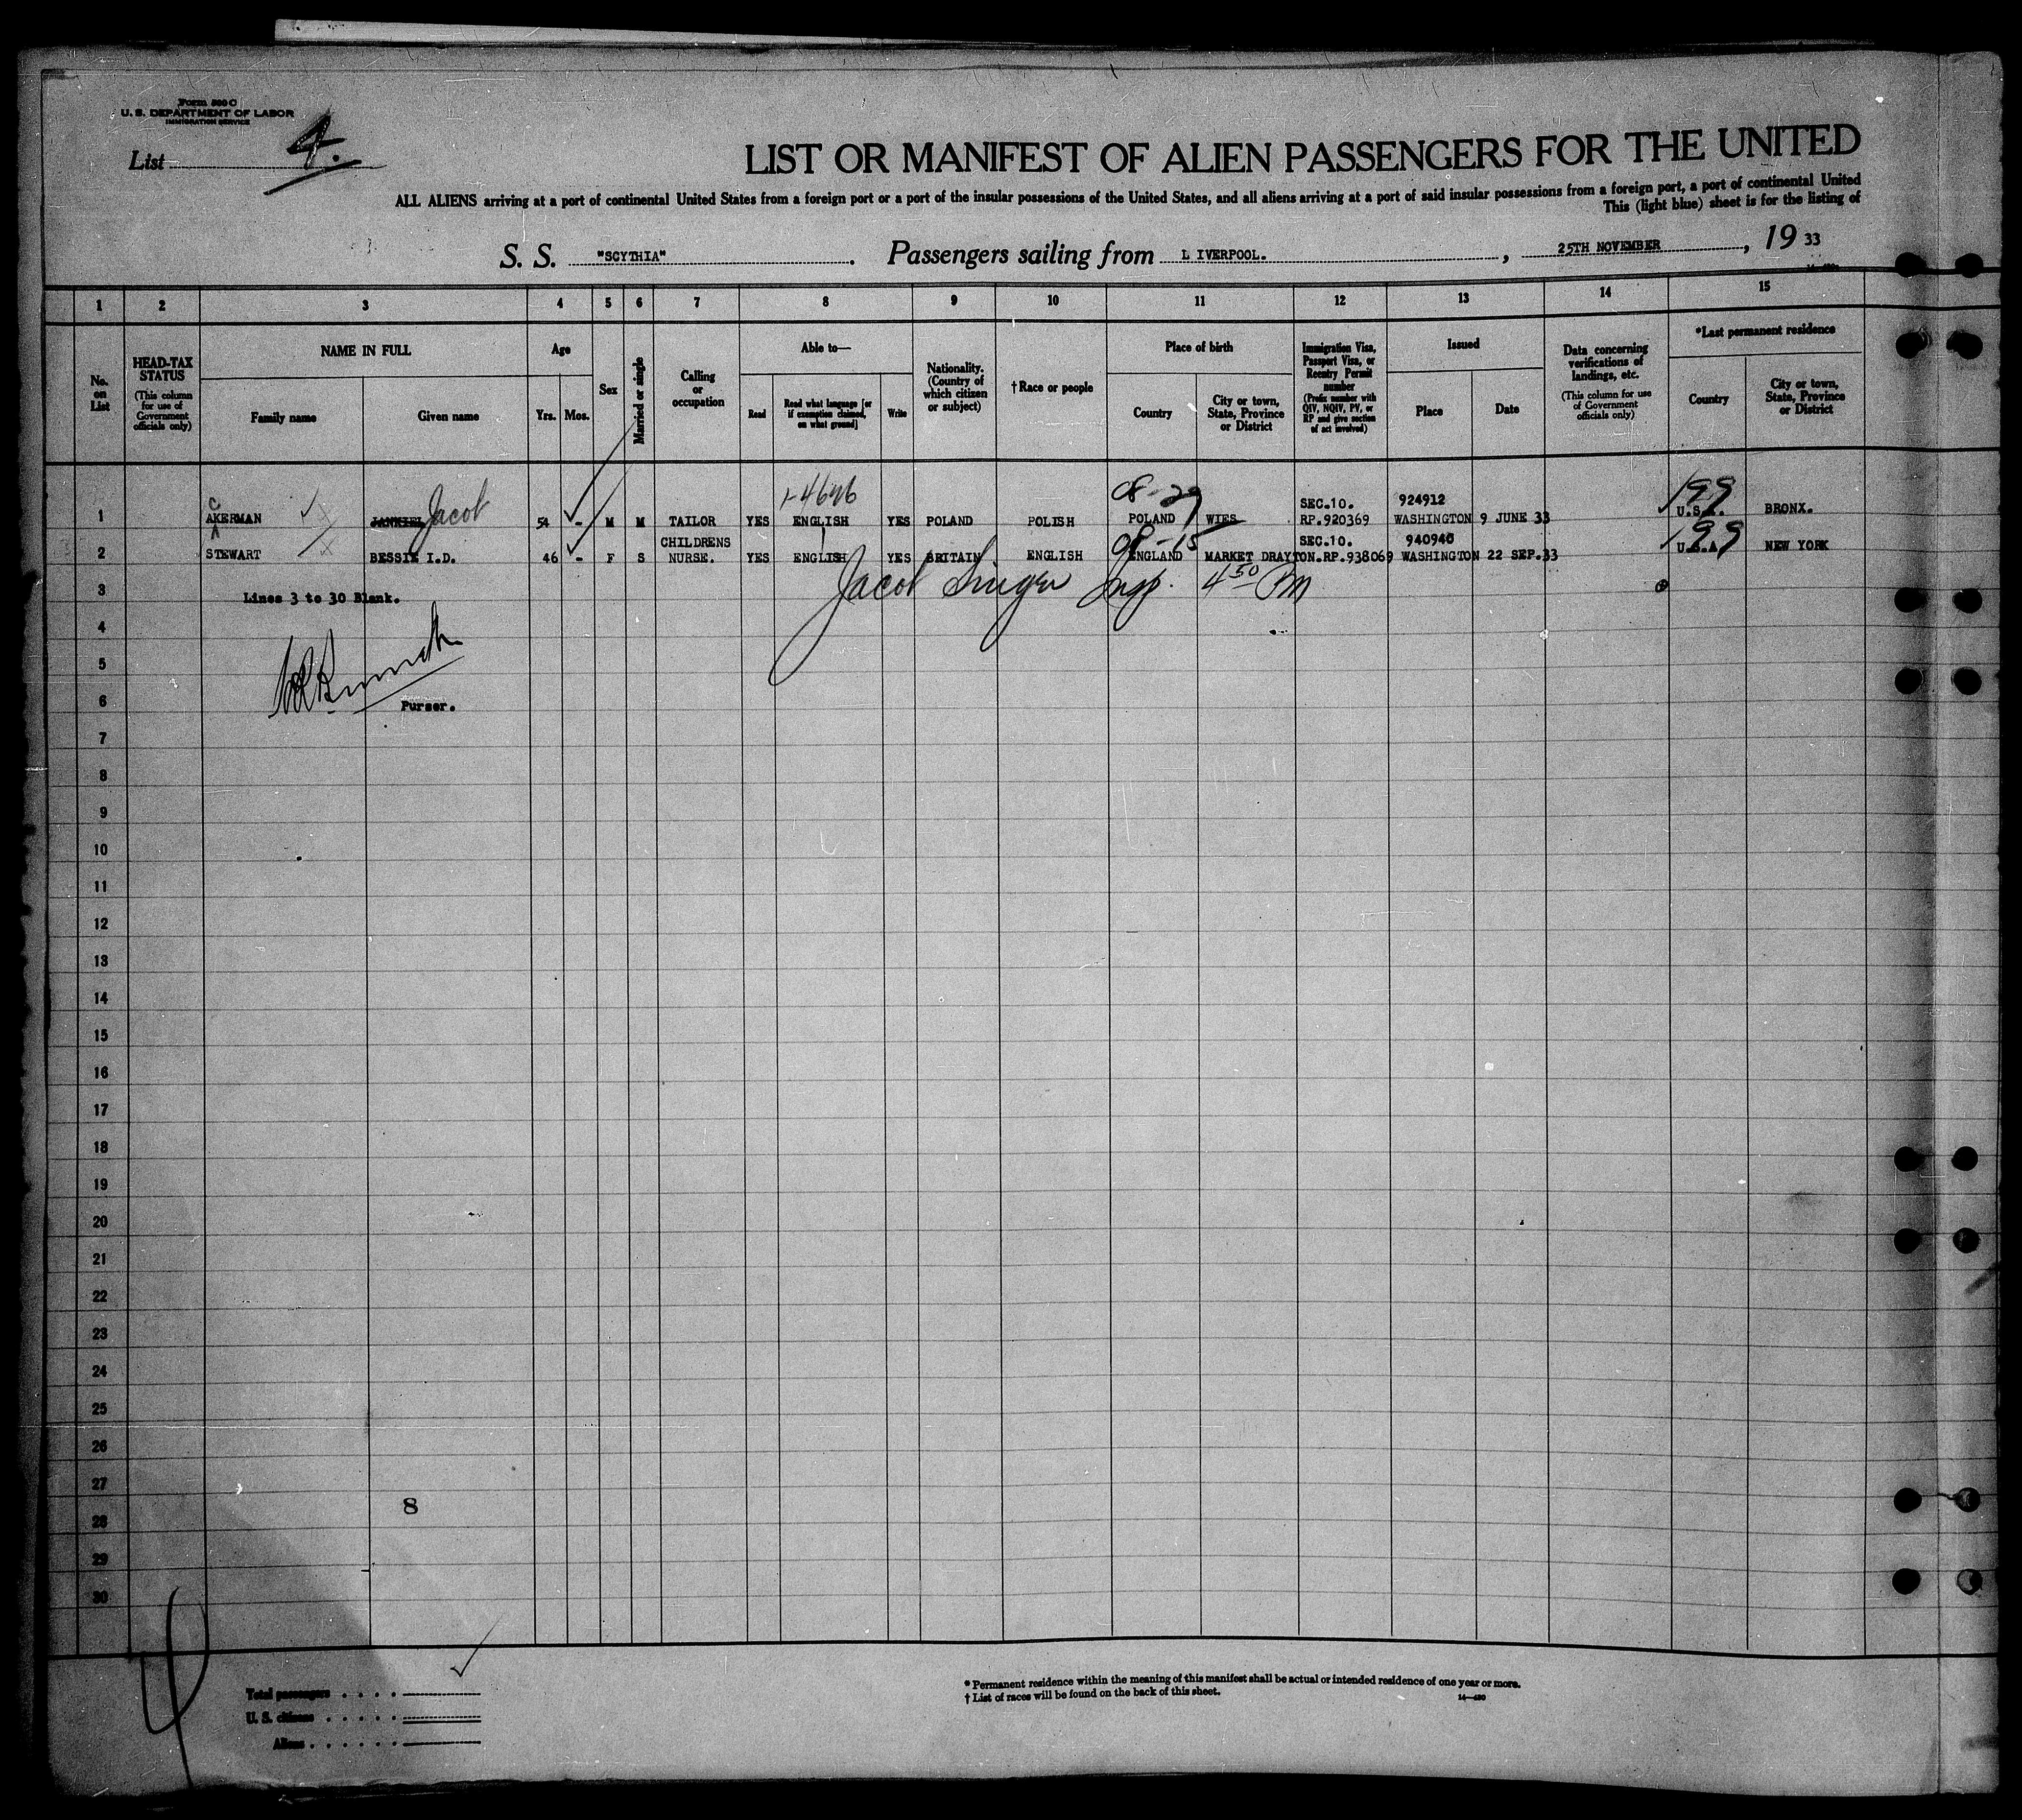 Form 500 C
U. S. DEPARTMENT OF LABOR
IMMIGRATION SERVICE
List 4.
LIST OR MANIFEST OF ALIEN PASSENGERS FOR THE UNITED
ALL ALIENS arriving at a port of continental United States from a foreign port or a port of the insular possessions of the United States, and all aliens arriving at a port of said insular possessions from a foreign port, a port of continental United
This (light blue) sheet is for the listing of
S. S. "SCYTHIA". Passengers sailing from L IVERPOOL. , 25TH NOVEMBER , 19 33
1 2 3 4 5 6 7 8 9 10 11 12 13 14 15
No. on List
HEAD-TAX STATUS (This column for use of Government officials only)
NAME IN FULL
Family name
Given name
Age
Yrs.
Mos.
Sex
Married or single
Calling or occupation
Able to—
Read
Read what language [or if exemption claimed, on what ground]
Write
Nationality. (Country of which citizen or subject)
†Race or people
Place of birth
Country
City or town, State, Province or District
Immigration Visa, Passport Visa, or Reentry Permit number (Prefix number with QIV, NQIV, PV, or RP and give section of act involved)
Issued
Place
Date
Data concerning verifications of landings, etc. (This column for use of Government officials only)
*Last permanent residence
Country
City or town, State, Province or District
C 1-4646 08-29 SEC.10. 924912 199
1 AKERMAN JANKIEL Jacob 54 - M M TAILOR YES ENGLISH YES POLAND POLISH POLAND WIES RP.920369 WASHINGTON 9 JUNE 33 U.S.A. BRONX.
CHILDRENS 08-15 SEC.10. 940940 199
2 STEWART BESSIE I.D. 46 - F S NURSE. YES ENGLISH YES BRITAIN ENGLISH ENGLAND MARKET DRAYTON. RP.938069 WASHINGTON 22 SEP.33 U.S.A. NEW YORK
3 Lines 3 to 30 Blank. Jacob Singer Insp. 4 50 PM
4
5
6 Purser.
7
8
9
10
11
12
13
14
15
16
17
18
19
20
21
22
23
24
25
26
27
8
28
29
30
4
Total passengers
U. S. citizens
Aliens
* Permanent residence within the meaning of this manifest shall be actual or intended residence of one year or more.
† List of races will be found on the back of this sheet.
14—480